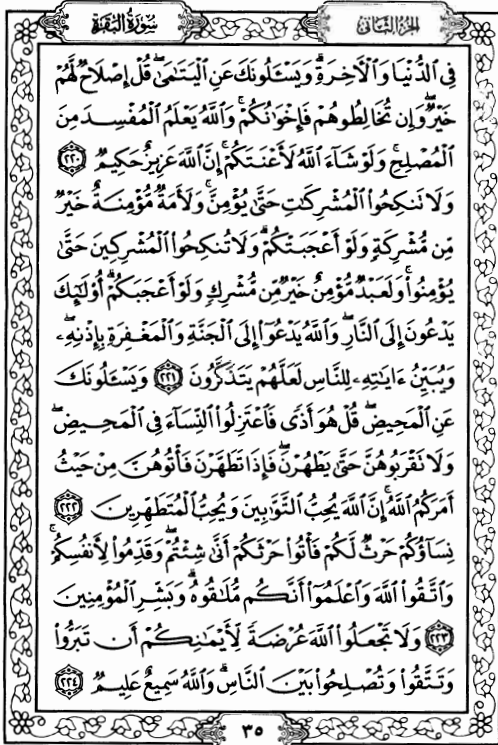 سُورَةُ البَقَرَةِ
الجُزْءُ الثَّانِي
فِي ٱلدُّنْيَا وَٱلْأَخِرَةِ ۗ وَيَسْـَٔلُونَكَ عَنِ ٱلْيَتَٰمَىٰ ۖ قُلْ إِصْلَاحٌ لَّهُمْ
خَيْرٌ ۖ وَإِن تُخَالِطُوهُمْ فَإِخْوَٰنُكُمْ ۚ وَٱللَّهُ يَعْلَمُ ٱلْمُفْسِدَ مِنَ
ٱلْمُصْلِحِ ۚ وَلَوْ شَآءَ ٱللَّهُ لَأَعْنَتَكُمْ ۚ إِنَّ ٱللَّهَ عَزِيزٌ حَكِيمٌ ٢٢٠
وَلَا تَنكِحُوا۟ ٱلْمُشْرِكَٰتِ حَتَّىٰ يُؤْمِنَّ ۚ وَلَأَمَةٌ مُّؤْمِنَةٌ خَيْرٌ
مِّن مُّشْرِكَةٍ وَلَوْ أَعْجَبَتْكُمْ ۗ وَلَا تُنكِحُوا۟ ٱلْمُشْرِكِينَ حَتَّىٰ
يُؤْمِنُوا۟ ۚ وَلَعَبْدٌ مُّؤْمِنٌ خَيْرٌ مِّن مُّشْرِكٍ وَلَوْ أَعْجَبَكُمْ ۗ أُو۟لَٰٓئِكَ
يَدْعُونَ إِلَى ٱلنَّارِ ۖ وَٱللَّهُ يَدْعُوٓا۟ إِلَى ٱلْجَنَّةِ وَٱلْمَغْفِرَةِ بِإِذْنِهِۦ ۖ
وَيُبَيِّنُ ءَايَٰتِهِۦ لِلنَّاسِ لَعَلَّهُمْ يَتَذَكَّرُونَ ٢٢١ وَيَسْـَٔلُونَكَ
عَنِ ٱلْمَحِيضِ ۖ قُلْ هُوَ أَذًى فَٱعْتَزِلُوا۟ ٱلنِّسَآءَ فِي ٱلْمَحِيضِ ۖ
وَلَا تَقْرَبُوهُنَّ حَتَّىٰ يَطْهُرْنَ ۖ فَإِذَا تَطَهَّرْنَ فَأْتُوهُنَّ مِنْ حَيْثُ
أَمَرَكُمُ ٱللَّهُ ۚ إِنَّ ٱللَّهَ يُحِبُّ ٱلتَّوَّٰبِينَ وَيُحِبُّ ٱلْمُتَطَهِّرِينَ ٢٢٢
نِسَآؤُكُمْ حَرْثٌ لَّكُمْ فَأْتُوا۟ حَرْثَكُمْ أَنَّىٰ شِئْتُمْ ۖ وَقَدِّمُوا۟ لِأَنفُسِكُمْ ۚ
وَٱتَّقُوا۟ ٱللَّهَ وَٱعْلَمُوٓا۟ أَنَّكُم مُّلَٰقُوهُ ۗ وَبَشِّرِ ٱلْمُؤْمِنِينَ
٢٢٣ وَلَا تَجْعَلُوا۟ ٱللَّهَ عُرْضَةً لِّأَيْمَٰنِكُمْ أَن تَبَرُّوا۟
وَتَتَّقُوا۟ وَتُصْلِحُوا۟ بَيْنَ ٱلنَّاسِ ۗ وَٱللَّهُ سَمِيعٌ عَلِيمٌ ٢٢٤
٣٥